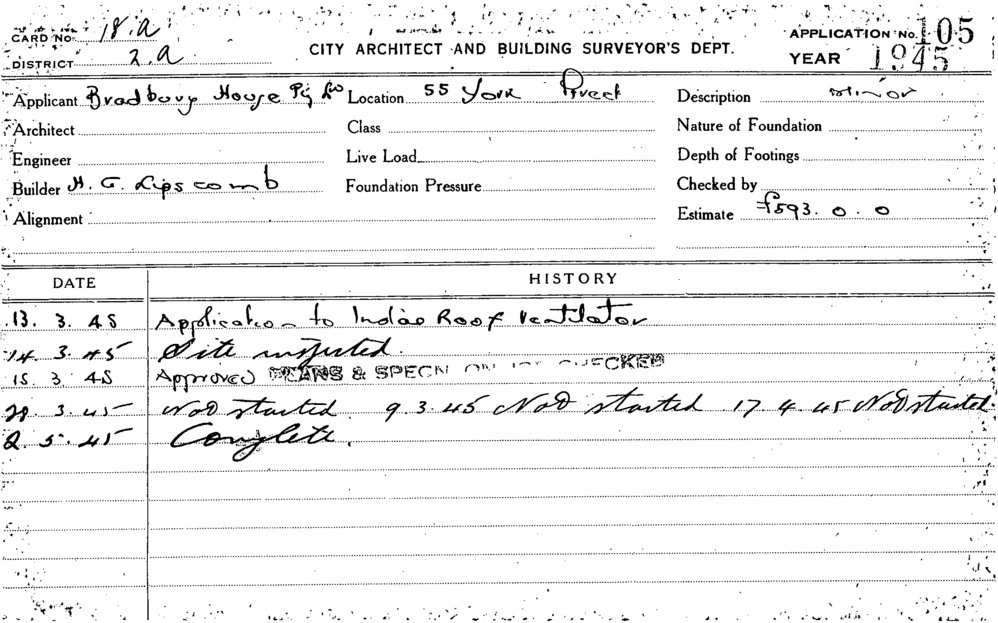 CARD No. 18.a
CITY ARCHITECT AND BUILDING SURVEYOR'S DEPT.
APPLICATION No. 105
DISTRICT 2.a
YEAR 1945
Applicant Bradbury House Pty Ld Location 55 York Street Description Minor
Architect Class Nature of Foundation
Engineer Live Load Depth of Footings
Builder H. G. Lipscomb Foundation Pressure Checked by
Alignment Estimate £593. 0. 0
DATE HISTORY
13. 3. 45 Application to Roof Ventilator
14. 3. 45 Site inspected.
15. 3. 45 Approved PLANS & SPECN CHECKED
28. 3. 45 Not started. 9 3.45 Not started 17.4.45 Not started.
2. 5. 45 Complete.